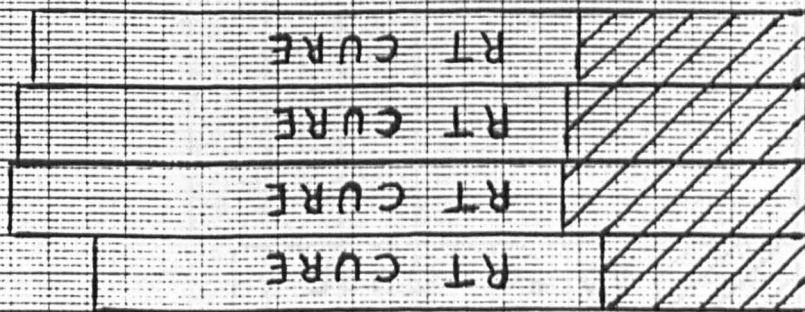 RT CURE
RT CURE
RT CURE
RT CURE